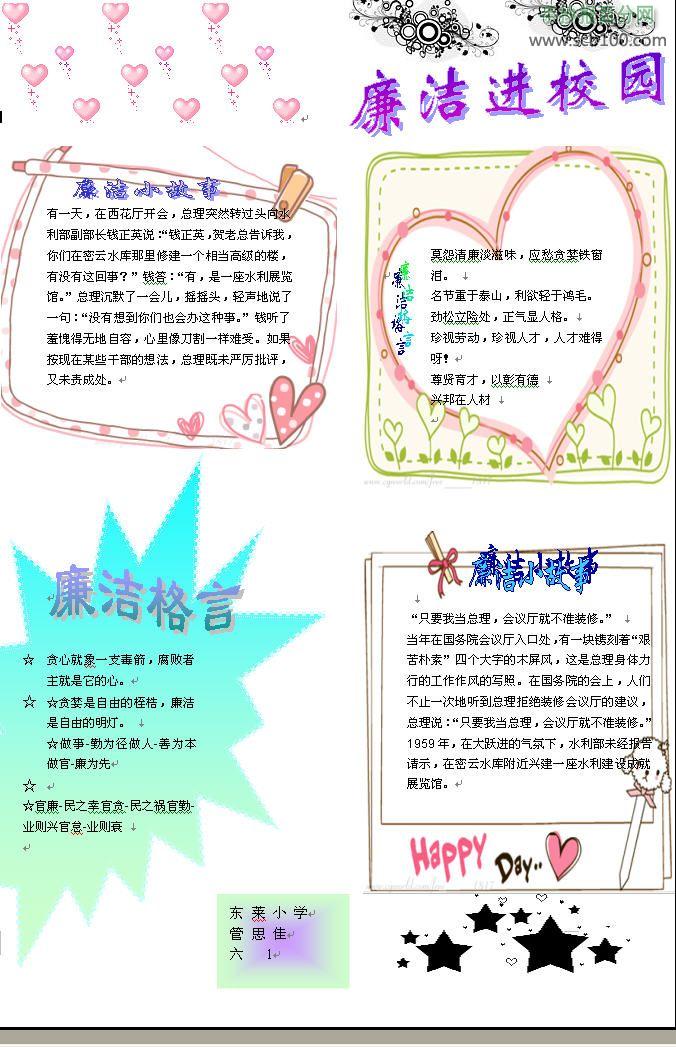 www.scb100.com
廉洁进校园
廉洁小故事
有一天，在西花厅开会，总理突然转过头向水
利部副部长钱正英说：“钱正英，贺老总告诉我，
你们在密云水库那里修建一个相当高级的楼，
有没有这回事？”钱答：“有，是一座水利展览
馆。”总理沉默了一会儿，摇摇头，轻声地说了
一句：“没有想到你们也会办这种事。”钱听了
羞愧得无地自容，心里像刀割一样难受。如果
按现在某些干部的想法，总理既未严厉批评，
又未责成处。
廉洁格言
莫怨清廉淡滋味，应愁贪婪铁窗
泪。
名节重于泰山，利欲轻于鸿毛。
劲松立险处，正气显人格。
珍视劳动，珍视人才，人才难得
呀！
尊贤育才，以彰有德
兴邦在人材
廉洁格言
☆ 贪心就象一支毒箭，腐败者
主就是它的心。
☆ ☆贪婪是自由的桎梏，廉洁
是自由的明灯。
☆做事-勤为径做人-善为本
做官-廉为先
☆
☆官廉-民之幸官贪-民之祸官勤-
业则兴官怠-业则衰
廉洁小故事
“只要我当总理，会议厅就不准装修。”
当年在国务院会议厅入口处，有一块镌刻着“艰
苦朴素”四个大字的木屏风，这是总理身体力
行的工作作风的写照。在国务院的会上，人们
不止一次地听到总理拒绝装修会议厅的建议，
总理说：“只要我当总理，会议厅就不准装修。”
1959年，在大跃进的气氛下，水利部未经报告
请示，在密云水库附近兴建一座水利建设成就
展览馆。
Happy
Day..
东莱小学
管思佳
六 1